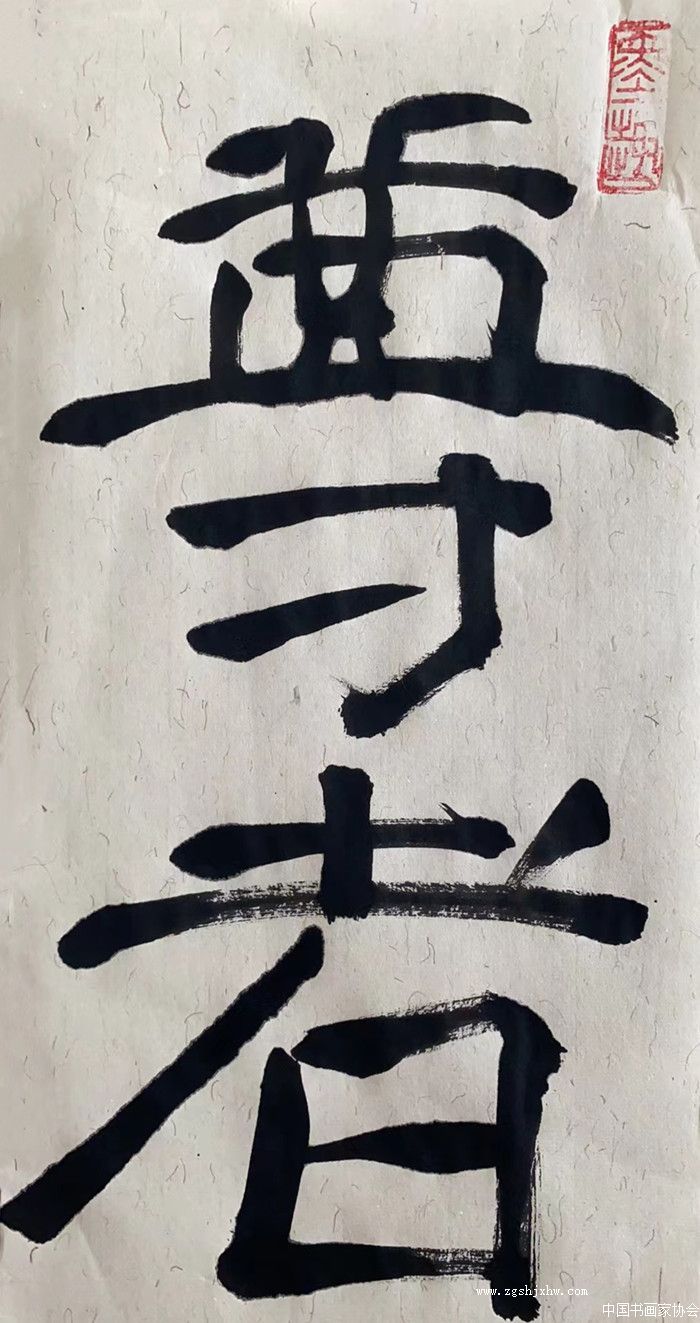 尊
者
www.zgshjxhw.com
中国书画家协会